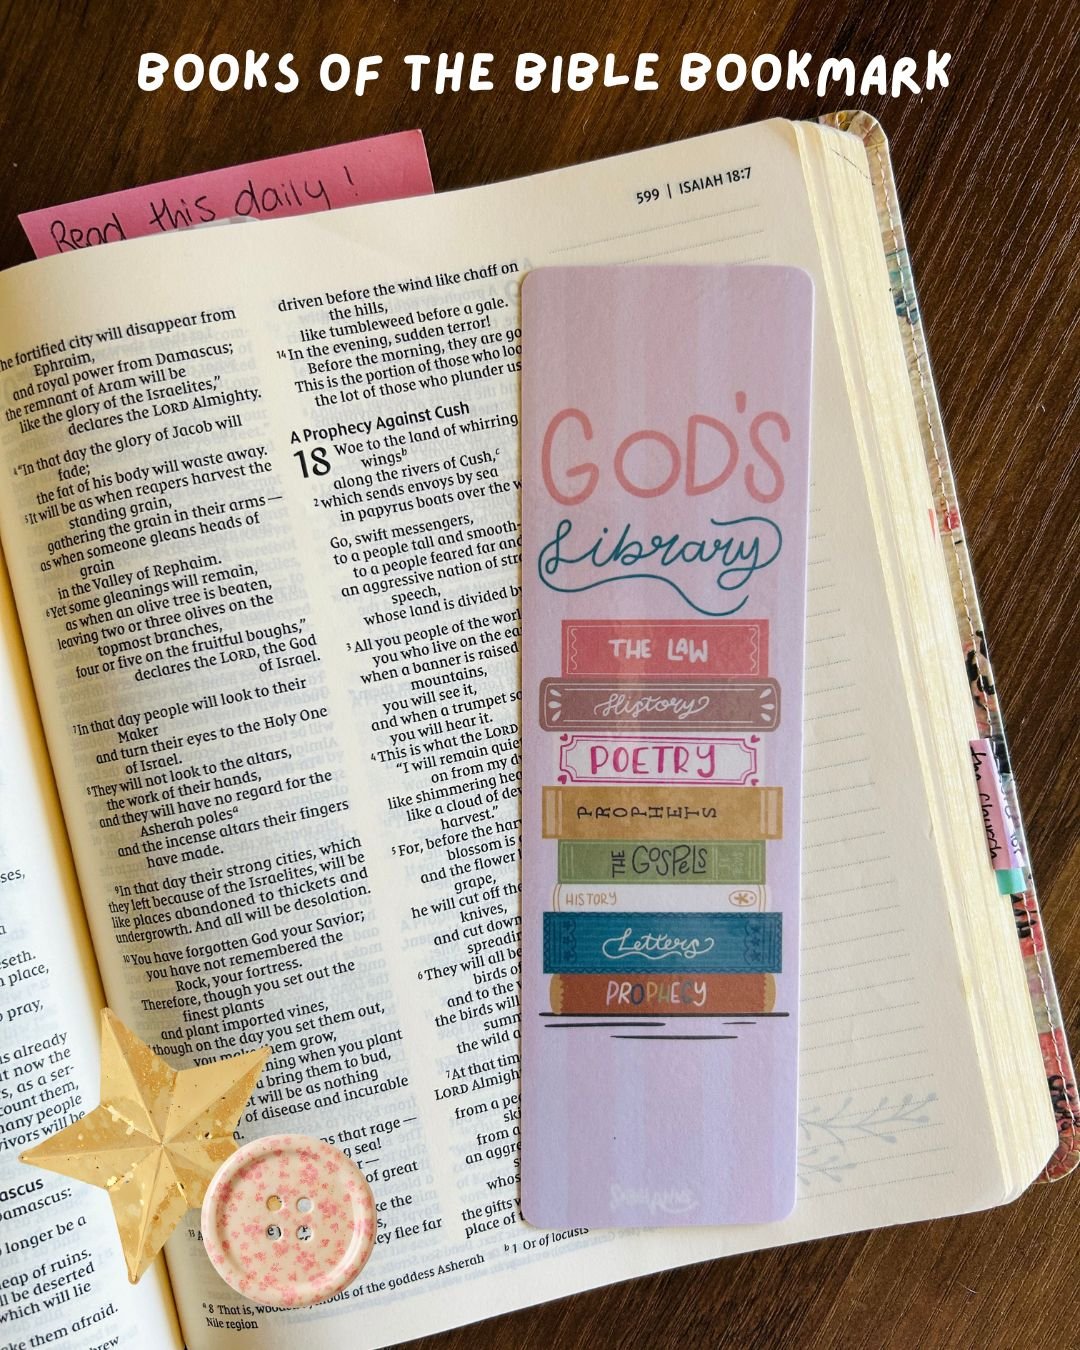 BOOKS OF THE BIBLE BOOKMARK
Read this daily!
599 | ISAIAH 18:7
he fortified city will disappear from
Ephraim,
and royal power from Damascus;
the remnant of Aram will be
like the glory of the Israelites,”
declares the LORD Almighty.
4“In that day the glory of Jacob will
fade;
the fat of his body will waste away.
5It will be as when reapers harvest the
standing grain,
gathering the grain in their arms—
as when someone gleans heads of
grain
in the Valley of Rephaim.
6Yet some gleanings will remain,
as when an olive tree is beaten,
leaving two or three olives on the
topmost branches,
four or five on the fruitful boughs,”
declares the LORD, the God
of Israel.
7In that day people will look to their
Maker
and turn their eyes to the Holy One
of Israel.
8They will not look to the altars,
the work of their hands,
and they will have no regard for the
Asherah polesa
and the incense altars their fingers
have made.
9In that day their strong cities, which
they left because of the Israelites, will be
like places abandoned to thickets and
undergrowth. And all will be desolation.
10You have forgotten God your Savior;
you have not remembered the
Rock, your fortress.
Therefore, though you set out the
finest plants
and plant imported vines,
though on the day you set them out,
you make them grow,
ning when you plant
bring them to bud,
will be as nothing
of disease and incurable
s that rage—
g sea!
of great
ke the
they flee far
driven before the wind like chaff on
the hills,
like tumbleweed before a gale.
14In the evening, sudden terror!
Before the morning, they are go
This is the portion of those who loo
the lot of those who plunder us
A Prophecy Against Cush
18 Woe to the land of whirring
wingsb
along the rivers of Cush,c
2which sends envoys by sea
in papyrus boats over the w
Go, swift messengers,
to a people tall and smooth-
to a people feared far and
an aggressive nation of stra
speech,
whose land is divided by
3All you people of the world
you who live on the ear
when a banner is raised
mountains,
you will see it,
and when a trumpet so
you will hear it.
4This is what the LORD
“I will remain quie
on from my d
like shimmering hea
like a cloud of dew
harvest.”
5For, before the har
blossom is
and the flower
grape,
he will cut off the
knives,
and cut down
spreadin
6They will all be
birds of
and to the
the birds will
summ
the wild a
7At that time
LORD Almigh
from a peo
ski
from a
an aggre
whos
the gifts
place of
a 8 That is, wooden symbols of the goddess Asherah
b 1 Or of locusts
Nile region
GOD'S
Library
THE LAW
History
POETRY
PROPHETS
THE GOSPELS
HISTORY
Letters
PROPHECY
ses,
seth.
n place,
pray,
is already
t now the
s, as a ser-
count them,
many people
vivors will be
ascus
Damascus:
longer be a
eap of ruins.
ll be deserted
which will lie
ke them afraid.